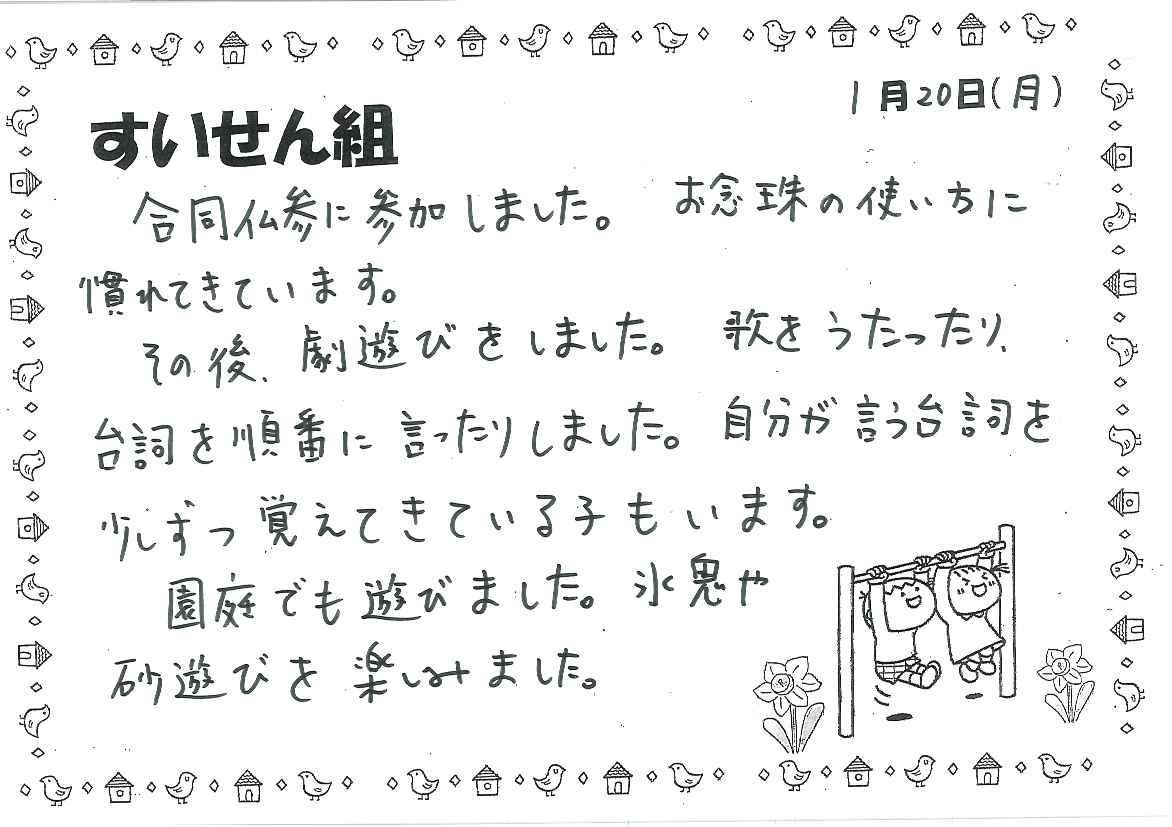 1月20日(月)
すいせん組
合同仏参に参加しました。 お念珠の使い方に
慣れてきています。
その後、劇遊びをしました。 歌をうたったり、
台詞を順番に言ったりしました。自分が言う台詞を
少しずつ覚えてきている子もいます。
園庭でも遊びました。氷鬼や
砂遊びを楽しみました。